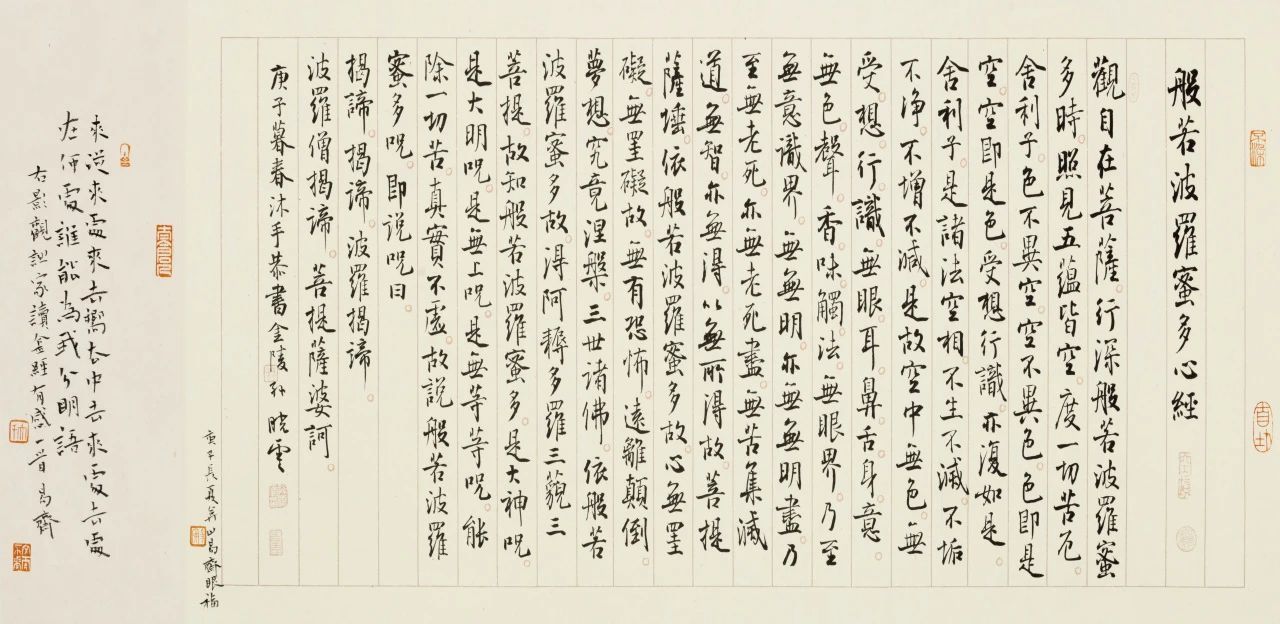 般若波羅蜜多心經
觀自在菩薩行深般若波羅蜜
多時照見五蘊皆空度一切苦厄
舍利子色不異空空不異色色即是
空空即是色受想行識亦復如是
舍利子是諸法空相不生不滅不垢
不淨不增不減是故空中無色無
受想行識無眼耳鼻舌身意
無色聲香味觸法無眼界乃至
無意識界無無明亦無無明盡乃
至無老死亦無老死盡無苦集滅
道無智亦無得以無所得故菩提
薩埵依般若波羅蜜多故心無罣
礙無罣礙故無有恐怖遠離顛倒
夢想究竟涅槃三世諸佛依般若
波羅蜜多故得阿耨多羅三藐三
菩提故知般若波羅蜜多是大神咒
是大明咒是無上咒是無等等咒能
除一切苦真實不虛故説般若波羅
蜜多咒即説咒曰
揭諦揭諦波羅揭諦
波羅僧揭諦菩提薩婆訶
庚子暮春沐手恭書金陵孫曉雲
庚子長夏山易齋眼福
來從來處來去嚮去中去來處去處
在何處誰能為我分明語
右影觀詞家讀金經有感一首易齋